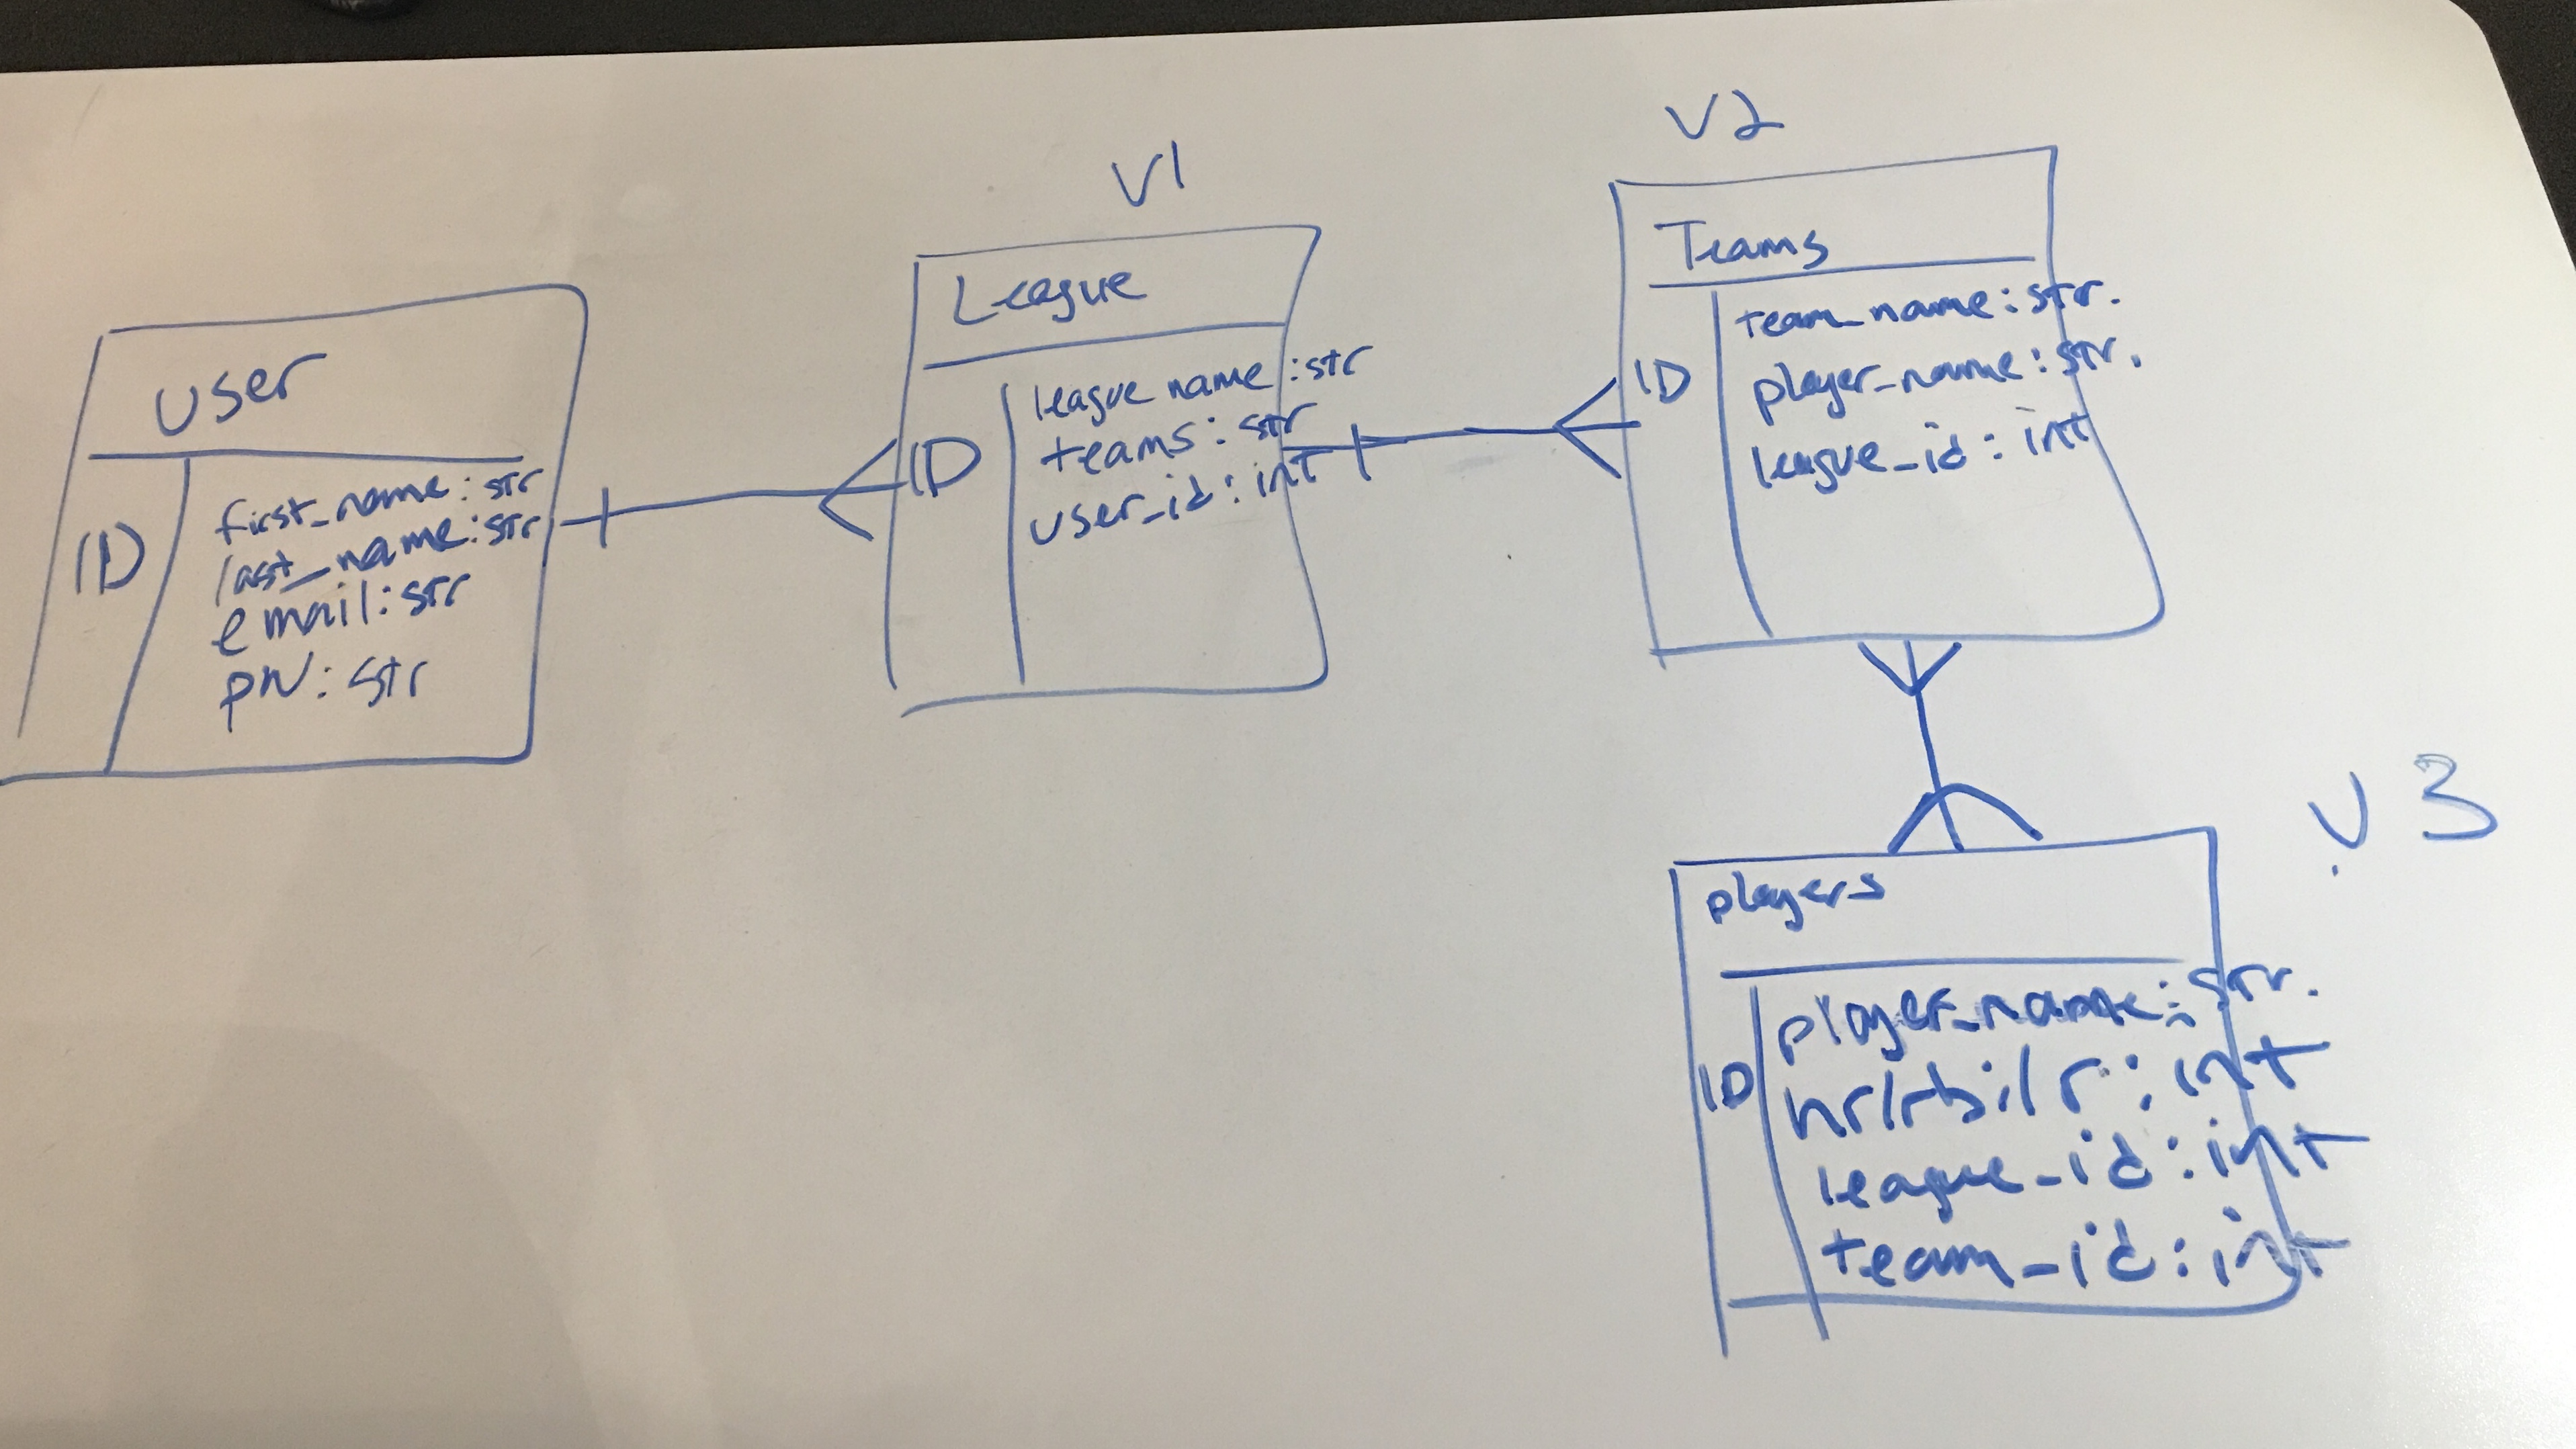 user
ID
first_name: str
last_name: str
email: str
pw: str
V1
League
ID
league name: str
teams: str
user_id: int
V2
Teams
ID
team_name: str.
player_name: str.
league_id: int
V3
players
ID
player_name: str.
hr/rbi/r: int
league_id: int
team_id: int